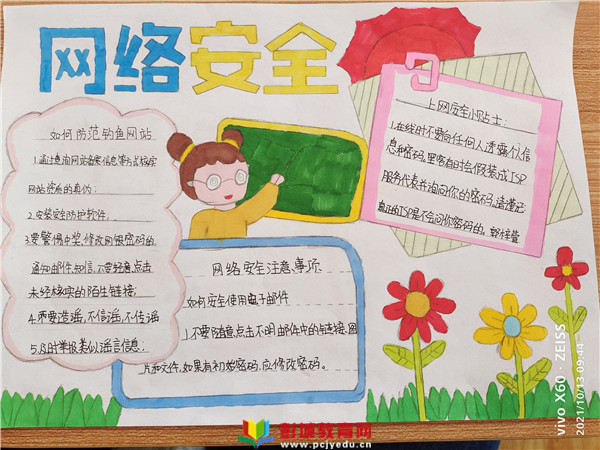 网络安全
如何防范钓鱼网站
1.通过查询网站备案信息等方式核实
网站资质的真伪;
2.安装安全防护软件;
3.要警惕中奖、修改网银密码的
通知邮件、短信,不要轻意点击
未经核实的陌生链接;
4.不要造谣,不信谣,不传谣
5.及时举报类似谣言信息;
上网安全小贴士:
1.在线时不要向任何人透露个人信
息和密码。黑客有时会假装成ISP
服务代表并询问你的密码。请谨记:
真正的ISP是不会问你密码的。
网络安全注意事项
如何安全使用电子邮件
1不要随意点击不明邮件中的链接、图
片和文件,如果有初始密码,应修改密码。
彭城教育网
www.pcjyedu.cn
vivo X60 · ZEISS
2021/10/13 09:44